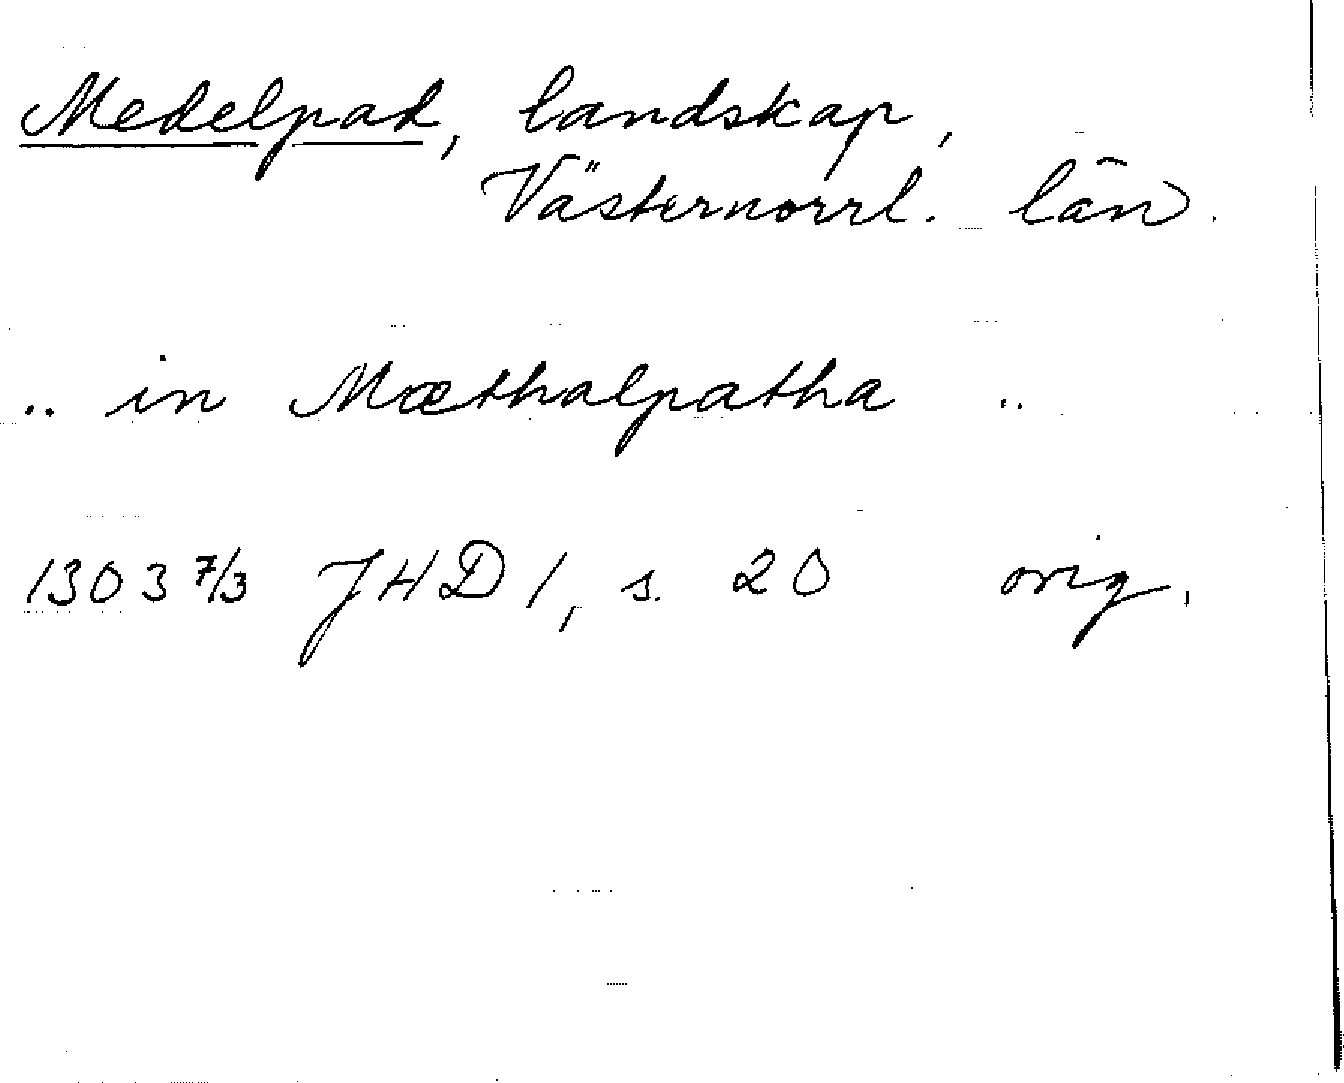 Medelpad, landskap,
Västernorrl. län.
.. in Mæthalpatha ..
1303 7/3 JHD 1, s. 20 orig.